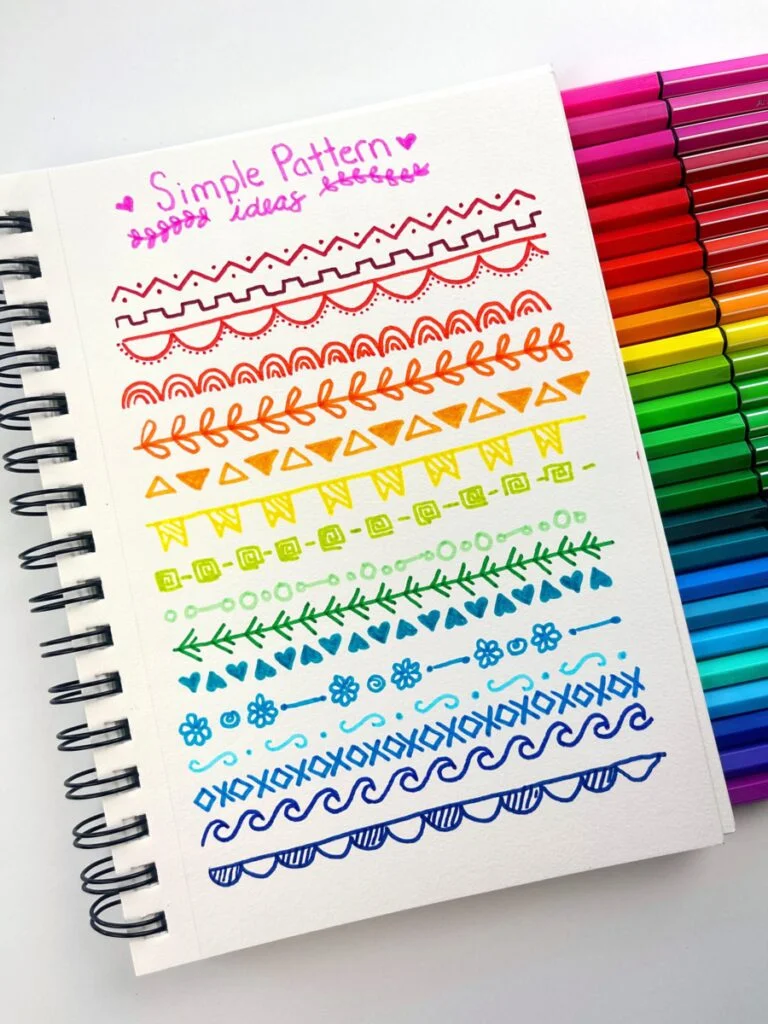 Simple Pattern
ideas